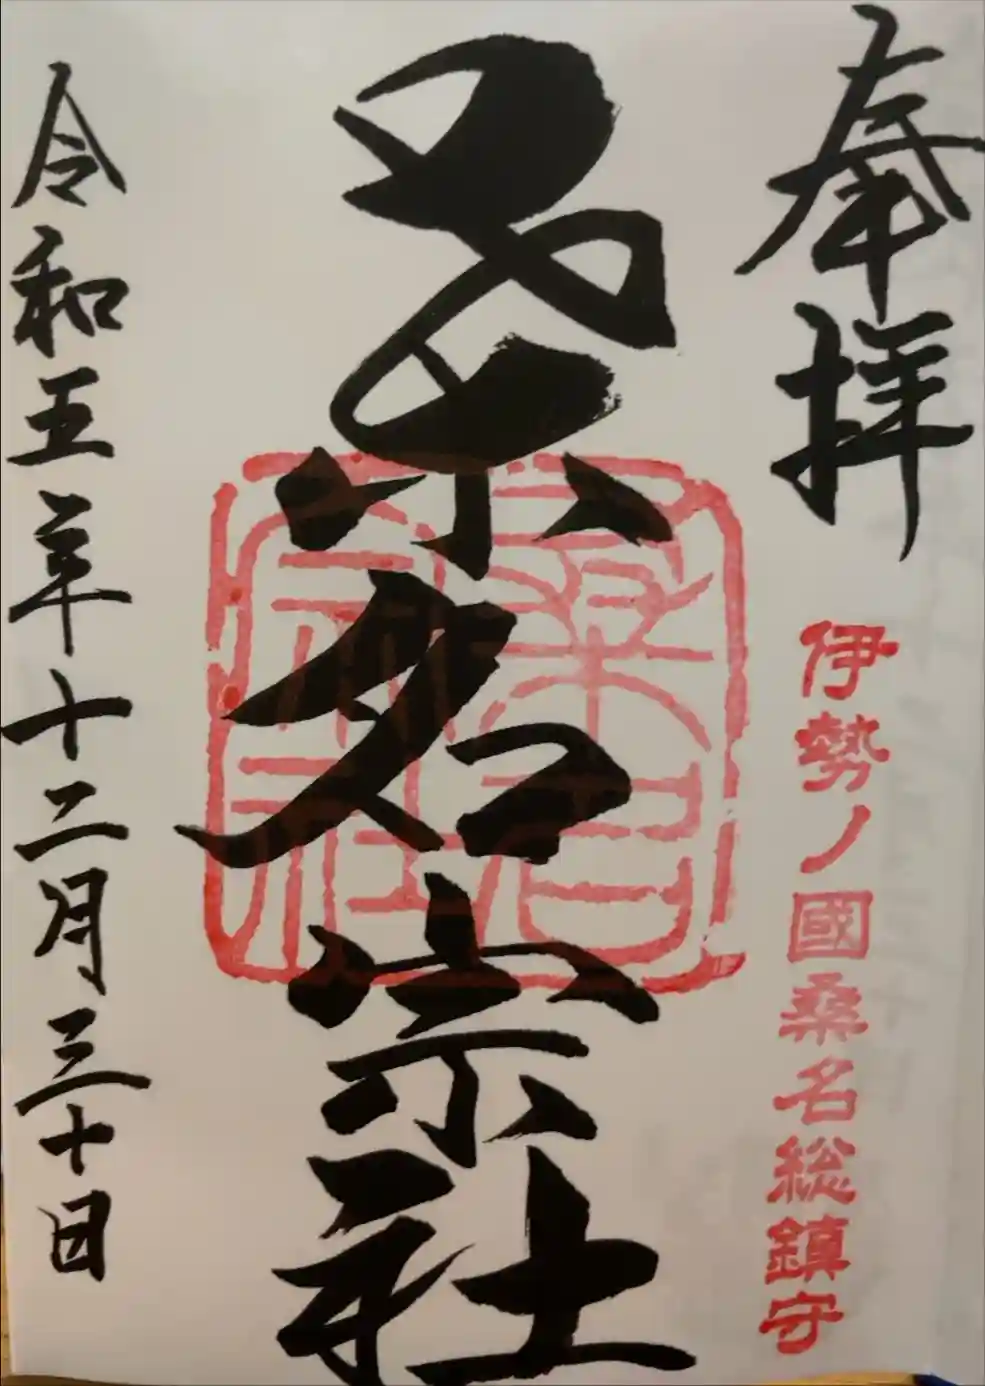 奉拝
伊勢ノ國桑名総鎮守
桑名宗社
桑名
宗社
令和五年十二月三十日